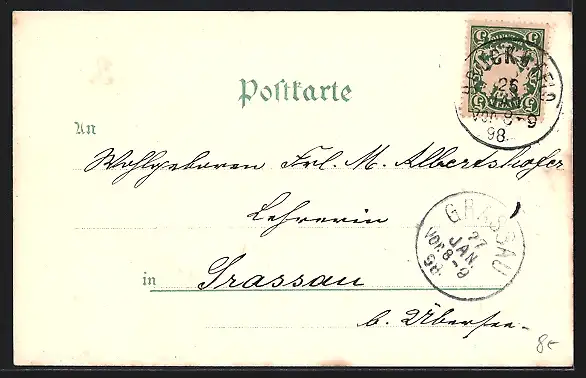 Postkarte
An
Wohlgeboren Frl. M. Albertshofer
Lehrerin
in Grassau
b. Übersee.
26
VOR. 8-9
98.
GRASSAU
27
JAN
VOR. 8-9
98
5 5
5 5
8-